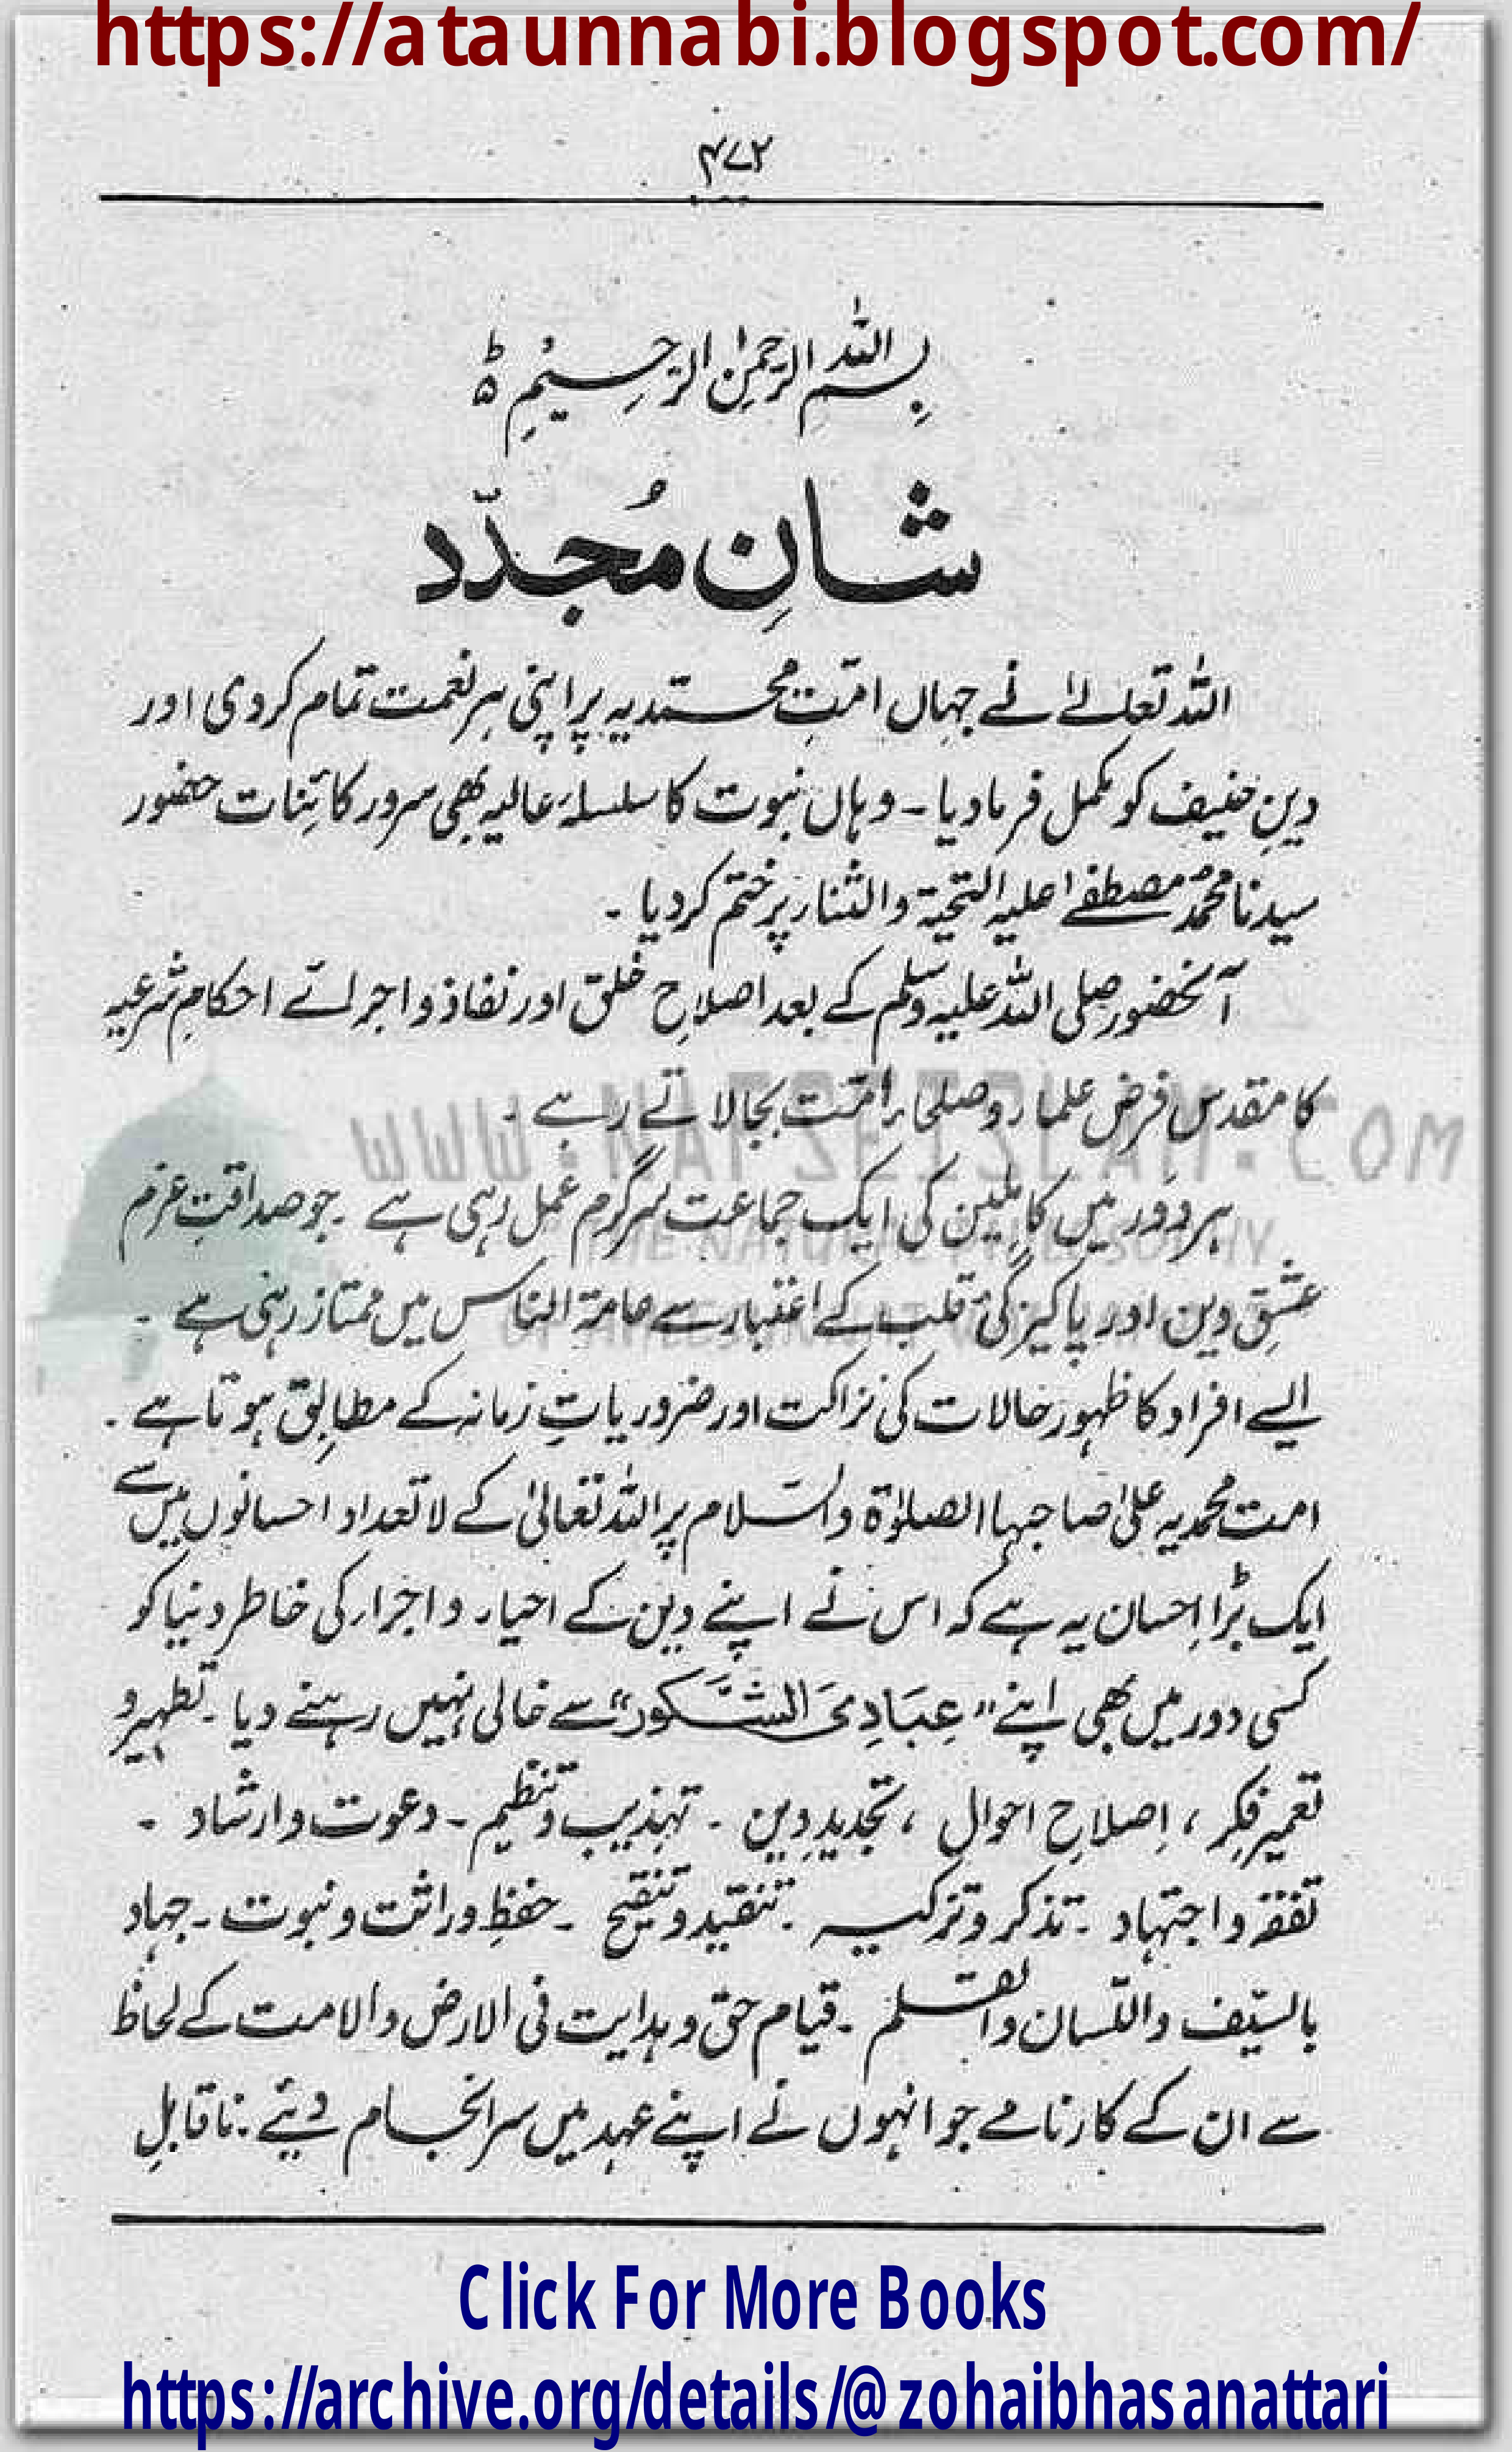 https://ataunnabi.blogspot.com/
۴۷۲
بِسْمِ اللہِ الرَّحمٰنِ الرَّحِیْمِ ط
شانِ مُجدّد
اللہ تعالےٰ نے جہاں امّتِ محمّدیہ پر اپنی ہر نعمت تمام کردی اور
دینِ حنیف کو مکمل فرما دیا ۔ وہاں نبوت کا سلسلۂ عالیہ بھی سرور کائنات حضور
سیدنا محمّد مصطفےٰ علیہ التحیۃ والثناء پر ختم کر دیا ۔
آنحضور صلی اللہ علیہ وسلم کے بعد اصلاحِ خلق اور نفاذ و اجرائے احکامِ شرعیہ
کا مقدس فرض علماء و صلحاءِ امّت بجا لاتے رہے ۔
www.NAFSEISLAM.COM
ہر دَور میں کاملین کی ایک جماعت سرگرم عمل رہی ہے ۔ جو صداقتِ عزم
THE NATURAL PHILOSOPHY
عشقِ دین اور پاکیزگیٔ قلب کے اعتبار سے عامۃ الناس میں ممتاز رہی ہے ۔
ایسے افراد کا ظہور حالات کی نزاکت اور ضروریاتِ زمانہ کے مطابق ہوتا ہے ۔
امت محمدیہ علیٰ صاحبہا الصلوٰۃ والسّلام پر اللہ تعالیٰ کے لاتعداد احسانوں میں سے
ایک بڑا اِحسان یہ ہے کہ اس نے اپنے دین کے احیاء و اجراء کی خاطر دنیا کو
کسی دور میں بھی اپنے "عِبَادِیَ الشَّکور" سے خالی نہیں رہنے دیا ۔ تطہیر و
تعمیرِ فکر ، اِصلاحِ احوال ، تجدیدِ دین ۔ تہذیب و تنظیم ۔ دعوت و ارشاد ۔
تفقہ و اجتہاد ۔ تذکر و تزکیہ ۔ تنقید و تنقیح ۔ حفظِ وراثت و نبوت ۔ جہاد
بالسّیف واللّسان والقلم ۔ قیام حق و ہدایت فی الارض والامت کے لحاظ
سے ان کے کارنامے جو انہوں نے اپنے عہد میں سرانجام دیئے ۔ ناقابلِ
Click For More Books
https://archive.org/details/@zohaibhasanattari